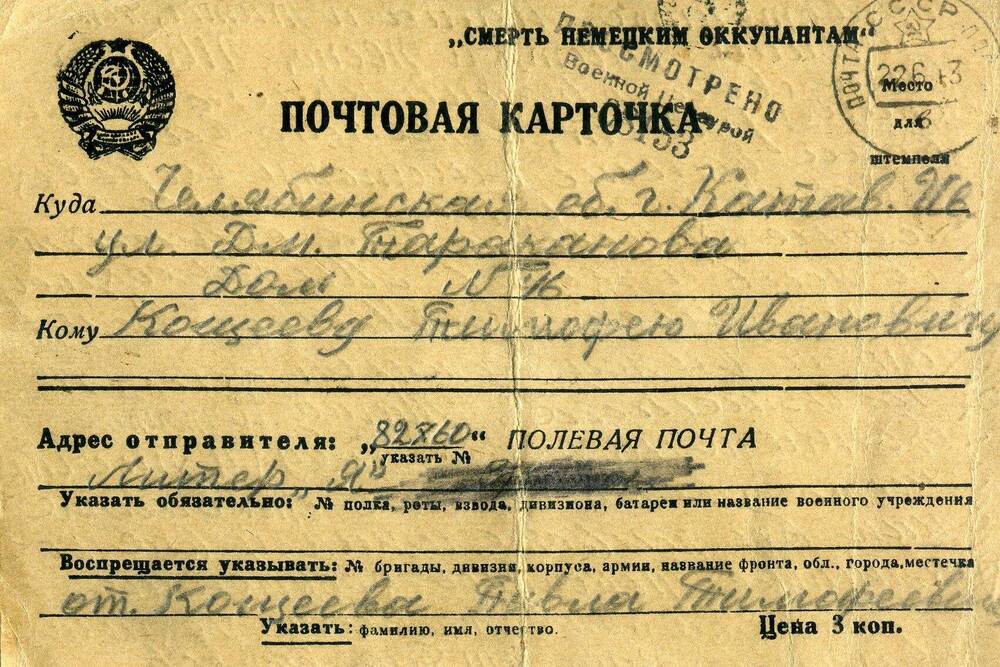 „СМЕРТЬ НЕМЕЦКИМ ОККУПАНТАМ“
ПРОСМОТРЕНО
Военной Цензурой
ПОЧТА СССР
22 6 43
Место
для
штемпеля
ПОЧТОВАЯ КАРТОЧКА
Куда Челябинская об. г. Катав. Ив
ул. Дм. Тараканова
Дом №
Кому Кощееву Тимофею Ивановичу
Адрес отправителя: „82860“ ПОЛЕВАЯ ПОЧТА
указать №
Литер „Я“
Указать обязательно: № полка, роты, взвода, дивизиона, батареи или название военного учреждения
Воспрещается указывать: № бригады, дивизии, корпуса, армии, название фронта, обл., города, местечка
от. Кощеева Павла Тимофеевич
Указать: фамилию, имя, отчество.
Цена 3 коп.